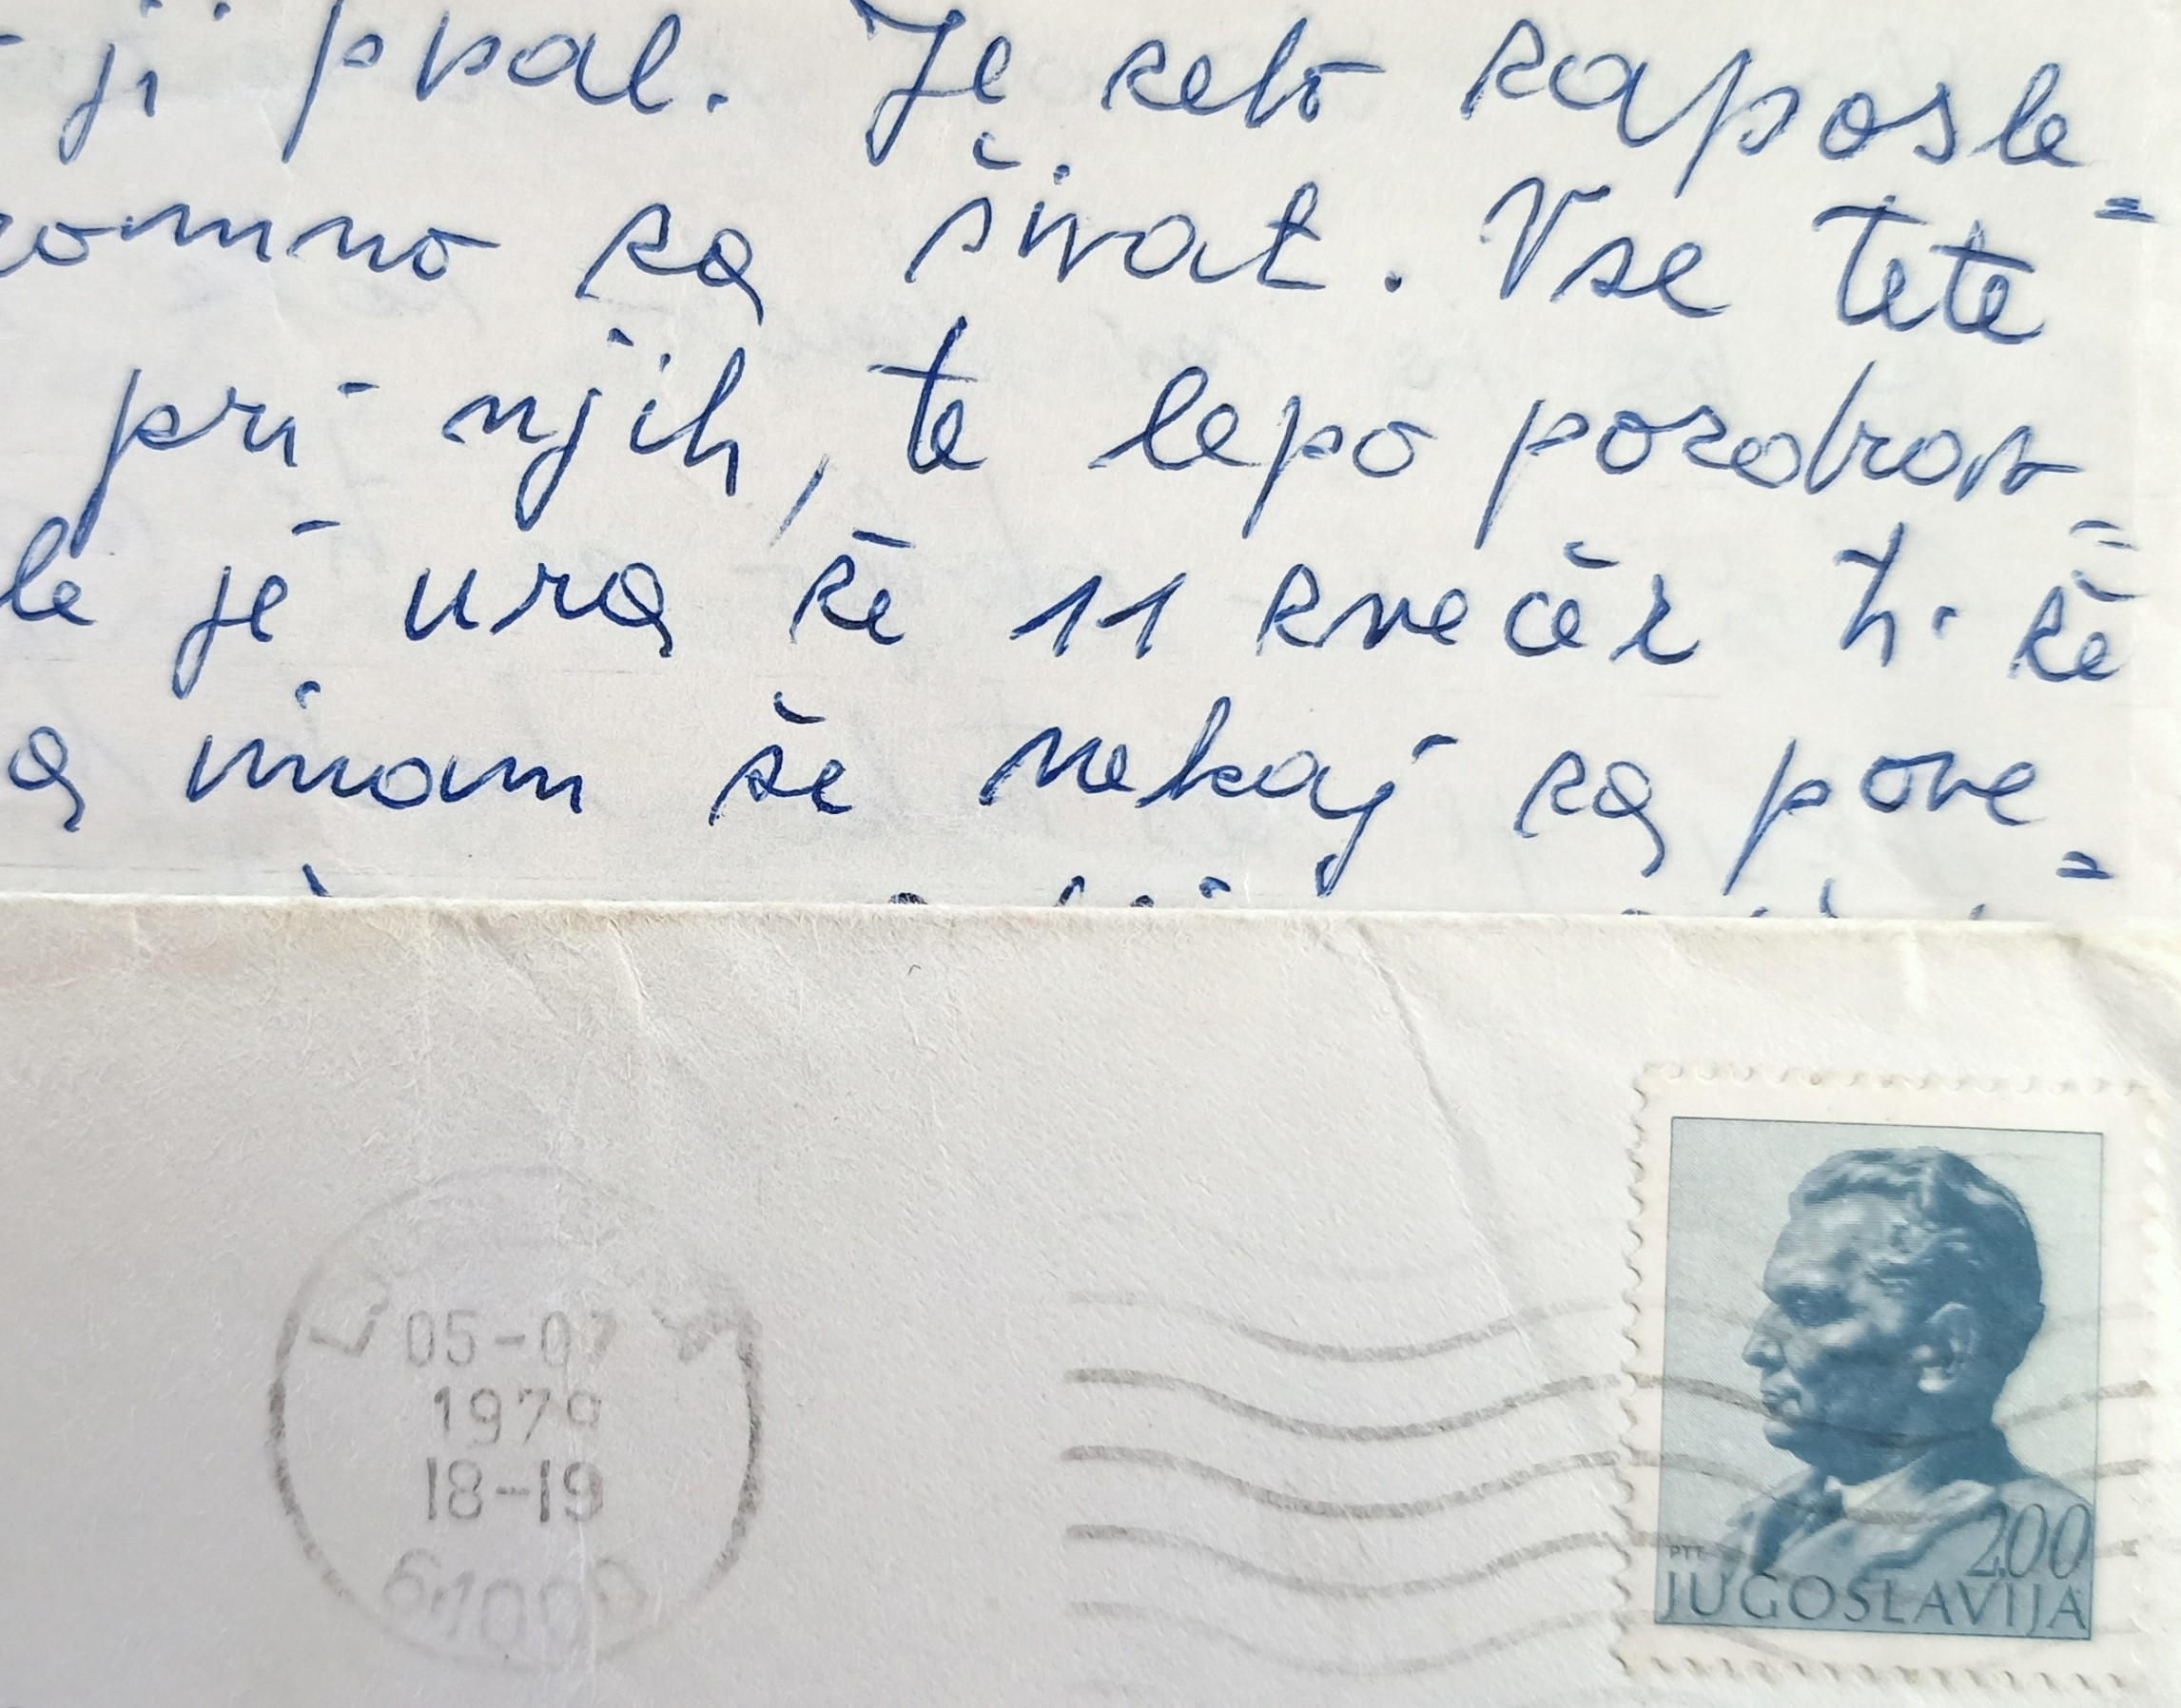 ji psal. Je zelo zaposle=
romno za šivat. Vse tete
pri njih, te lepo pozdrav=
le je ura že 11 zvečer h. že
imam še nekaj za pove=
05-07
1979
18-19
61000
200
PTT
JUGOSLAVIJA